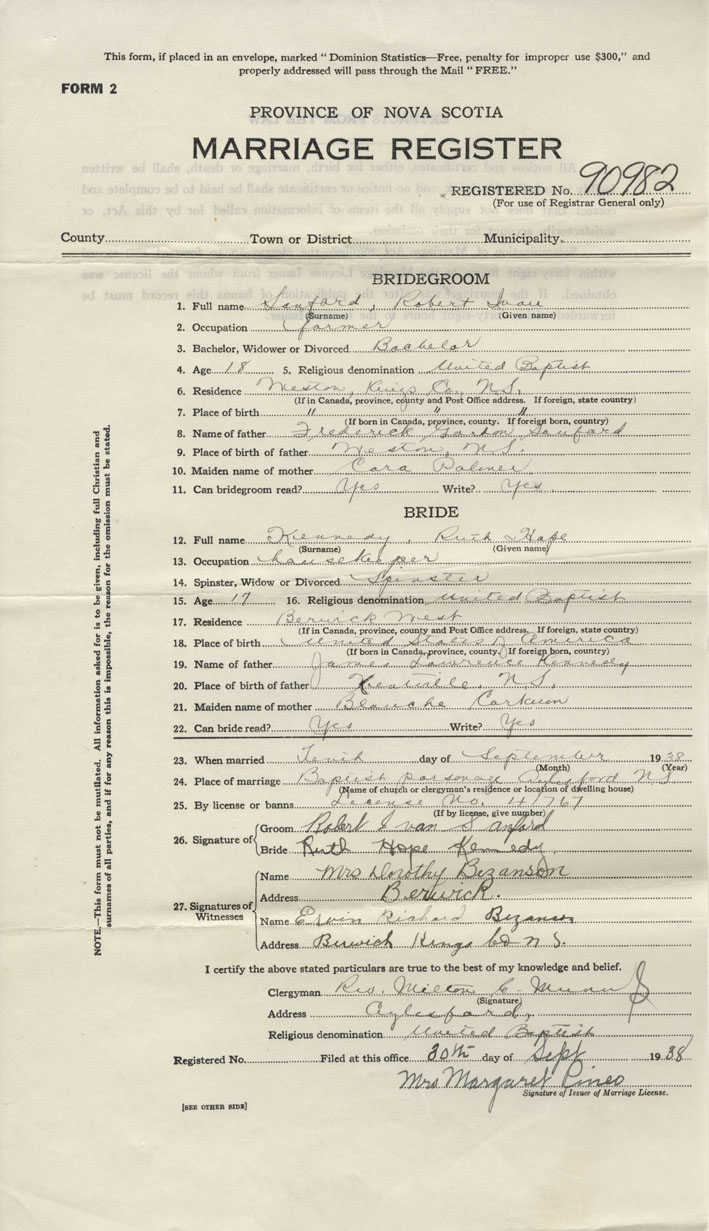 This form, if placed in an envelope, marked "Dominion Statistics—Free, penalty for improper use $300," and
properly addressed will pass through the Mail "FREE."
FORM 2
PROVINCE OF NOVA SCOTIA
MARRIAGE REGISTER
REGISTERED No. 90982
(For use of Registrar General only)
County Town or District Municipality
BRIDEGROOM
1. Full name Sanford, Robert Ivan
(Surname) (Given name)
2. Occupation farmer
3. Bachelor, Widower or Divorced Bachelor
4. Age 18 5. Religious denomination United Baptist
6. Residence Weston, Kings Co. N.S.
(If in Canada, province, county and Post Office address. If foreign, state country)
7. Place of birth " " "
(If born in Canada, province, county. If foreign born, country)
8. Name of father Frederick Sanford
9. Place of birth of father Weston, N.S.
10. Maiden name of mother Cora Palmer
11. Can bridegroom read? Yes Write? Yes.
BRIDE
12. Full name Kennedy, Ruth Hope
(Surname) (Given name)
13. Occupation housekeeper
14. Spinster, Widow or Divorced Spinster
15. Age 17 16. Religious denomination United Baptist
17. Residence Berwick West
(If in Canada, province, county and Post Office address. If foreign, state country)
18. Place of birth United States of America
(If born in Canada, province, county. If foreign born, country)
19. Name of father James Lawrence Kennedy
20. Place of birth of father Kentville, N.S.
21. Maiden name of mother Blanche Corkum
22. Can bride read? Yes Write? Yes
23. When married Tenth day of September 1938
(Month) (Year)
24. Place of marriage Baptist parsonage Aylesford N.S
(Name of church or clergyman's residence or location of dwelling house)
25. By license or banns License No. 41767
(If by license, give number)
26. Signature of Groom Robert Ivan Sanford
Bride Ruth Hope Kennedy.
27. Signatures of Witnesses Name Mrs Dorothy Bezanson
Address Berwick.
Name Ervin Richard Bezanson
Address Berwick Kings Co N S.
I certify the above stated particulars are true to the best of my knowledge and belief.
Clergyman Rev. Milton C.
(Signature)
Address Aylesford,
Religious denomination United Baptist
Registered No. Filed at this office 30th day of Sept 1938
Mrs Margaret Pineo
Signature of Issuer of Marriage License.
[SEE OTHER SIDE]
NOTE.—This form must not be mutilated. All information asked for is to be given, including full Christian and
surnames of all parties, and if for any reason this is impossible, the reason for the omission must be stated.